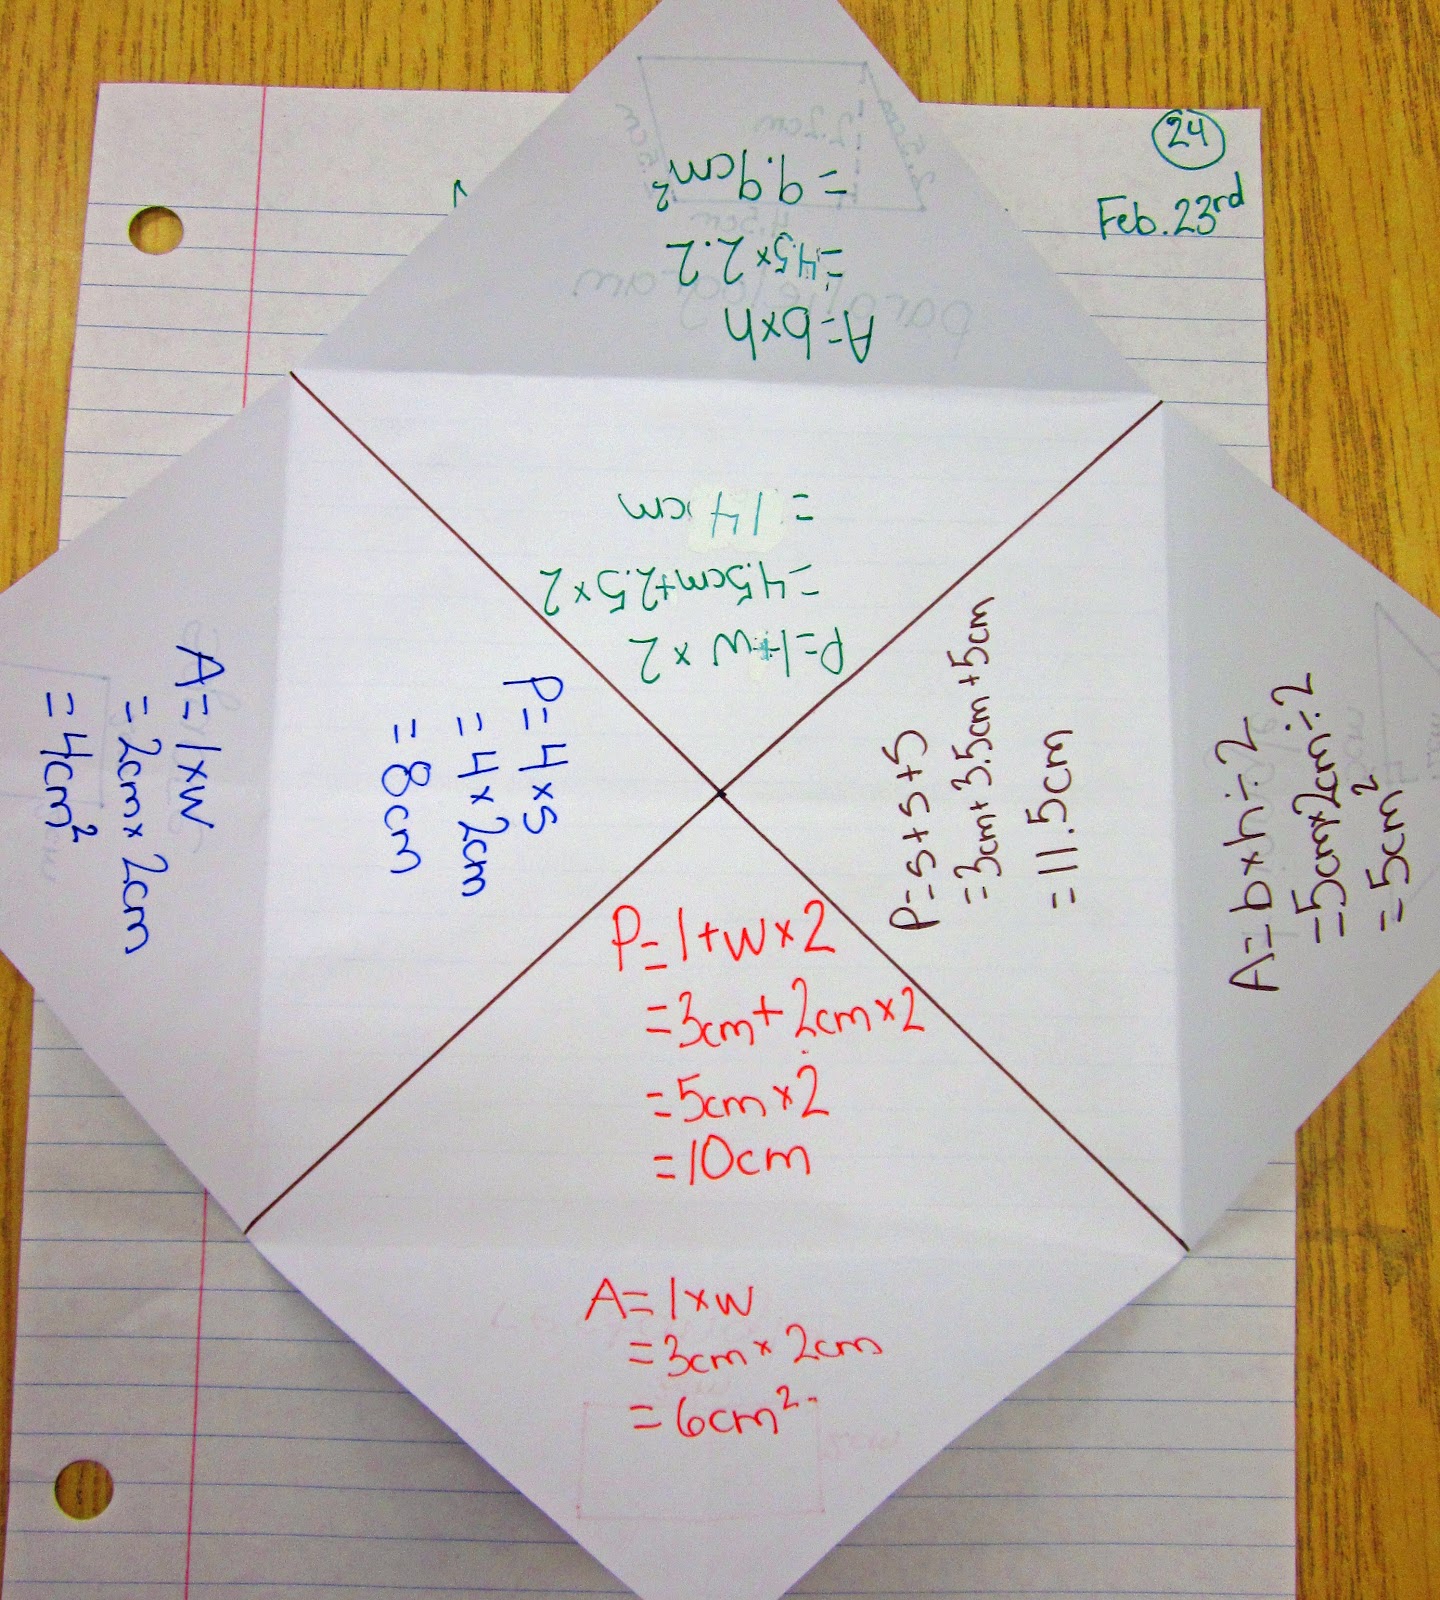 24
Feb. 23rd
A=b×h
=4.5×2.2
=9.9cm²
P=l+w×2
=4.5cm+2.5×2
=14cm
A=l×w
=2cm×2cm
=4cm²
P=4×s
=4×2cm
=8cm
P=s+s+s
=3cm+3.5cm+5cm
=11.5cm
A=b×h÷2
=5cm×2cm÷2
=5cm²
P=l+w×2
=3cm+2cm×2
=5cm×2
=10cm
A=l×w
=3cm×2cm
=6cm²
parallelogram
4.5cm
2.2cm
2.5cm